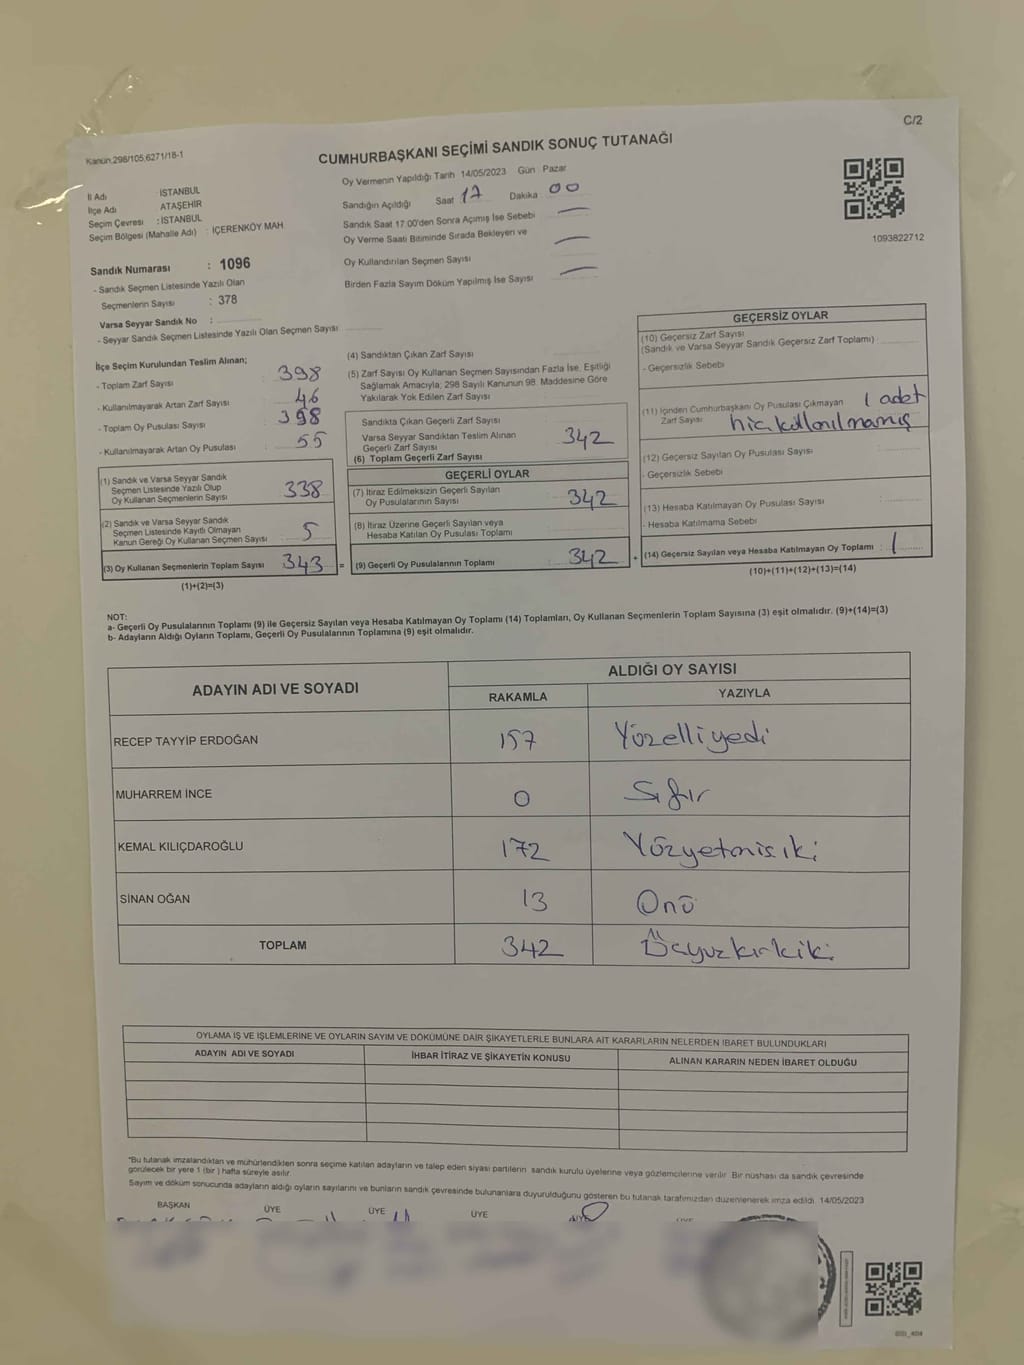 C/2
Kanun,298/105,6271/18-1
CUMHURBAŞKANI SEÇİMİ SANDIK SONUÇ TUTANAĞI
Oy Vermenin Yapıldığı Tarih 14/05/2023 Gün Pazar
Sandığın Açıldığı Saat 17 Dakika 00
Sandık Saat 17:00'den Sonra Açımış İse Sebebi —
Oy Verme Saati Bitiminde Sırada Bekleyen ve —
Oy Kullandırılan Seçmen Sayısı
Birden Fazla Sayım Döküm Yapılmış İse Sayısı —
İl Adı İSTANBUL
İlçe Adı ATAŞEHİR
Seçim Çevresi : İSTANBUL
Seçim Bölgesi (Mahalle Adı) : İÇERENKÖY MAH.
1093822712
Sandık Numarası : 1096
- Sandık Seçmen Listesinde Yazılı Olan
Seçmenlerin Sayısı : 378
Varsa Seyyar Sandık No :
- Seyyar Sandık Seçmen Listesinde Yazılı Olan Seçmen Sayısı
İlçe Seçim Kurulundan Teslim Alınan;
- Toplam Zarf Sayısı 398
- Kullanılmayarak Artan Zarf Sayısı 46
- Toplam Oy Pusulası Sayısı 398
- Kullanılmayarak Artan Oy Pusulası 55
(1) Sandık ve Varsa Seyyar Sandık
Seçmen Listesinde Yazılı Olup
Oy Kullanan Seçmenlerin Sayısı 338
(2) Sandık ve Varsa Seyyar Sandık
Seçmen Listesinde Kayıtlı Olmayan
Kanun Gereği Oy Kullanan Seçmen Sayısı 5
(3) Oy Kullanan Seçmenlerin Toplam Sayısı 343 =
(1)+(2)=(3)
(4) Sandıktan Çıkan Zarf Sayısı
(5) Zarf Sayısı Oy Kullanan Seçmen Sayısından Fazla İse, Eşitliği
Sağlamak Amacıyla; 298 Sayılı Kanunun 98. Maddesine Göre
Yakılarak Yok Edilen Zarf Sayısı
Sandıkta Çıkan Geçerli Zarf Sayısı
Varsa Seyyar Sandıktan Teslim Alınan
Geçerli Zarf Sayısı
(6) Toplam Geçerli Zarf Sayısı 342
GEÇERLİ OYLAR
(7) İtiraz Edilmeksizin Geçerli Sayılan
Oy Pusulalarının Sayısı 342
(8) İtiraz Üzerine Geçerli Sayılan veya
Hesaba Katılan Oy Pusulası Toplamı
(9) Geçerli Oy Pusulalarının Toplamı 342 +
GEÇERSİZ OYLAR
(10) Geçersiz Zarf Sayısı
(Sandık ve Varsa Seyyar Sandık Geçersiz Zarf Toplamı) :
- Geçersizlik Sebebi
(11) İçinden Cumhurbaşkanı Oy Pusulası Çıkmayan 1 adet
Zarf Sayısı hiç kullanılmamış
(12) Geçersiz Sayılan Oy Pusulası Sayısı :
- Geçersizlik Sebebi
(13) Hesaba Katılmayan Oy Pusulası Sayısı :
- Hesaba Katılmama Sebebi
(14) Geçersiz Sayılan veya Hesaba Katılmayan Oy Toplamı : 1
(10)+(11)+(12)+(13)=(14)
NOT:
a- Geçerli Oy Pusulalarının Toplamı (9) ile Geçersiz Sayılan veya Hesaba Katılmayan Oy Toplamı (14) Toplamları, Oy Kullanan Seçmenlerin Toplam Sayısına (3) eşit olmalıdır. (9)+(14)=(3)
b- Adayların Aldığı Oyların Toplamı, Geçerli Oy Pusulalarının Toplamına (9) eşit olmalıdır.
ADAYIN ADI VE SOYADI
ALDIĞI OY SAYISI
RAKAMLA YAZIYLA
RECEP TAYYİP ERDOĞAN 157 Yüzelliyedi
MUHARREM İNCE 0 Sıfır
KEMAL KILIÇDAROĞLU 172 Yüzyetmişiki
SİNAN OĞAN 13 Onü
TOPLAM 342 Üçyuzkırkiki
OYLAMA İŞ VE İŞLEMLERİNE VE OYLARIN SAYIM VE DÖKÜMÜNE DAİR ŞİKAYETLERLE BUNLARA AİT KARARLARIN NELERDEN İBARET BULUNDUKLARI
ADAYIN ADI VE SOYADI İHBAR İTİRAZ VE ŞİKAYETİN KONUSU ALINAN KARARIN NEDEN İBARET OLDUĞU
*Bu tutanak imzalandıktan ve mühürlendikten sonra seçime katılan adayların ve talep eden siyasi partilerin sandık kurulu üyelerine veya gözlemcilerine verilir. Bir nüshası da sandık çevresinde
görülecek bir yere 1 (bir) hafta süreyle asılır.
Sayım ve döküm sonucunda adayların aldığı oyların sayılarını ve bunların sandık çevresinde bulunanlara duyurulduğunu gösteren bu tutanak tarafımızdan düzenlenerek imza edildi. 14/05/2023
BAŞKAN ÜYE ÜYE ÜYE ÜYE ÜYE